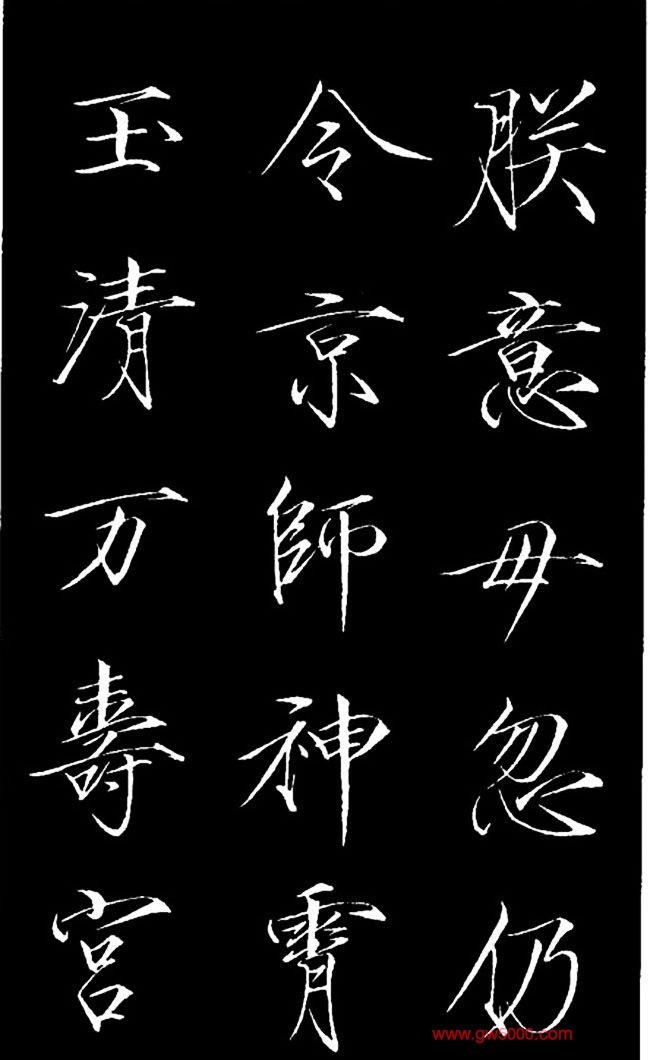 朕意毋忽仍
令京師神霄
玉清万壽宮
www.gw8000.com